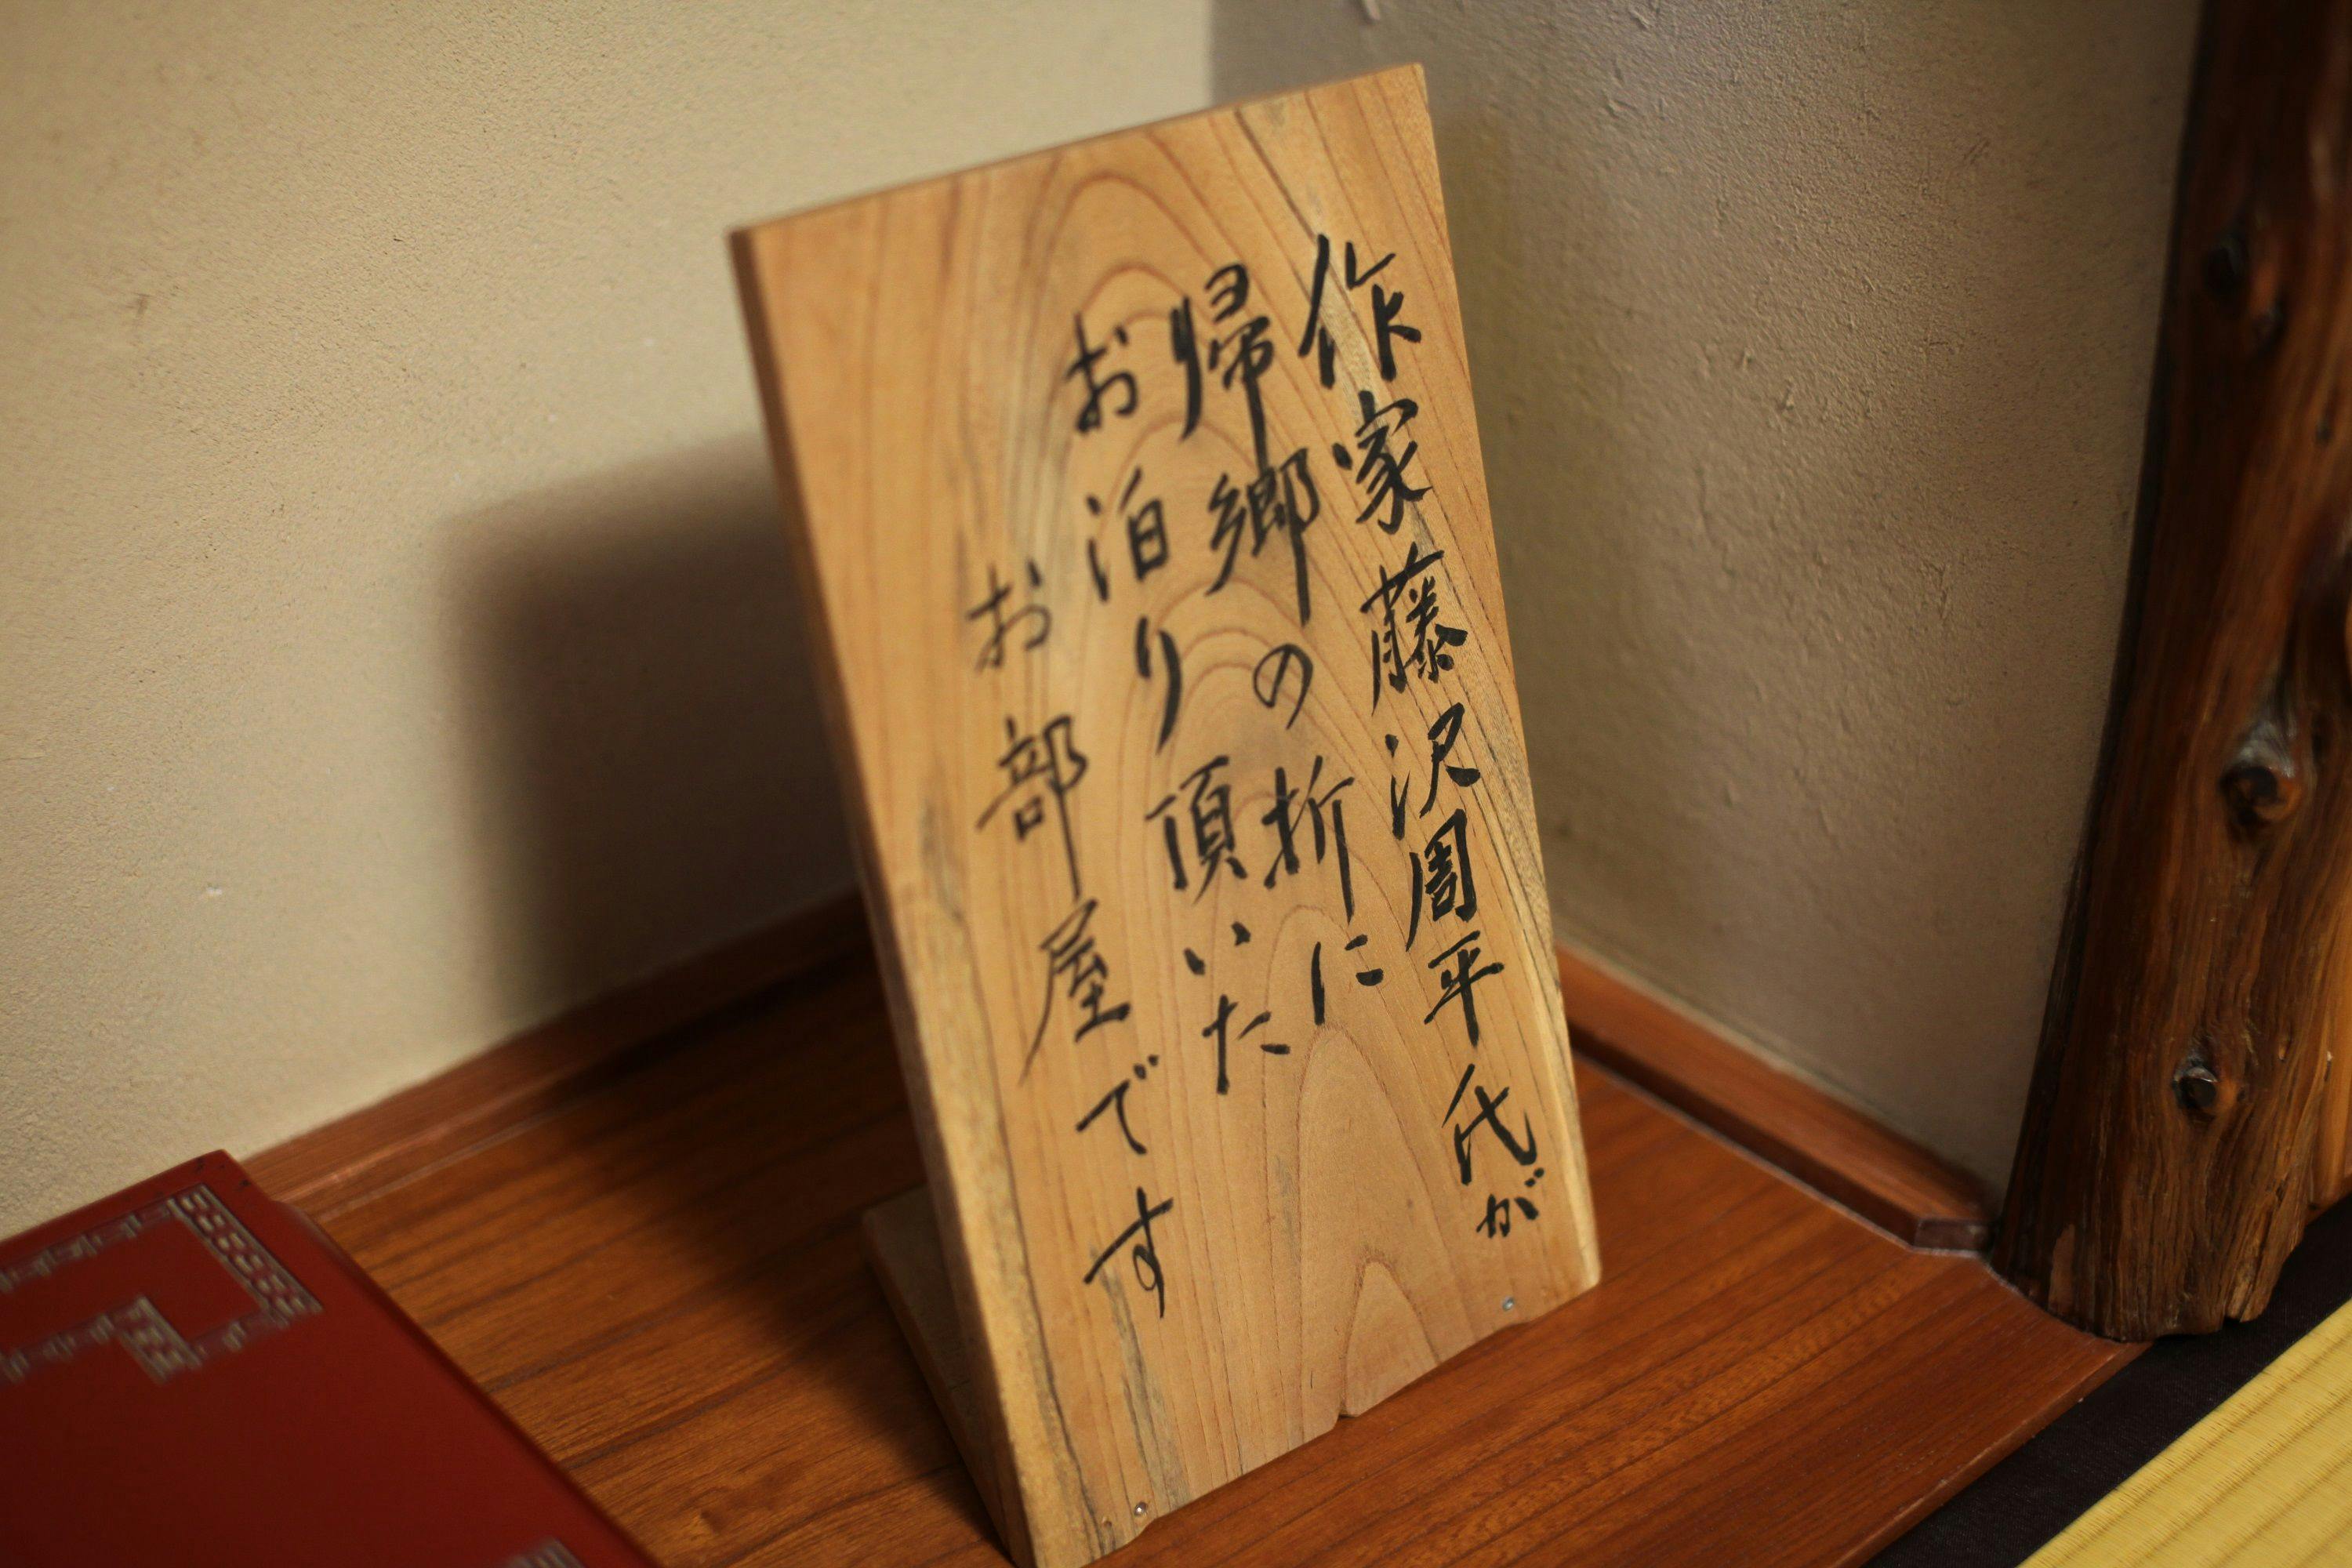 作家藤沢周平氏が
帰郷の折に
お泊り頂いた
お部屋です